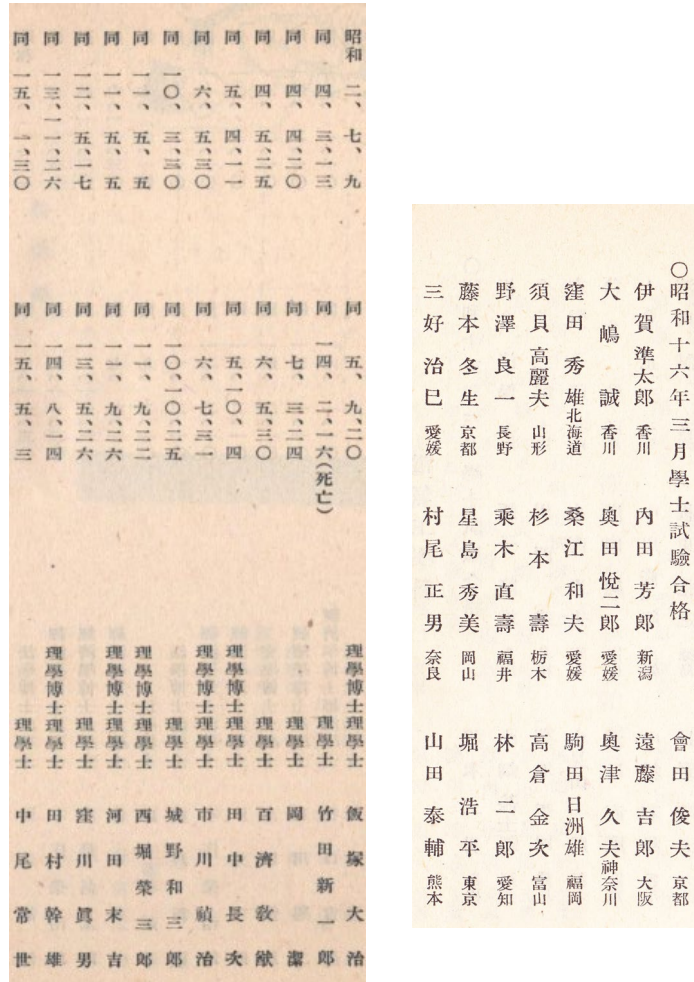 昭和 二、七、九 同 五、九、二〇 理學博士理學士 飯塚大治
同 四、三、一三 同 一四、二、一六(死亡) 理學士 竹田新一郎
同 四、四、二〇 同 七、三、二四 理學士 岡潔
同 四、五、二五 同 六、五、三〇 理學士 百濟敎猷
同 五、四、一一 同 五、一〇、四 理學博士理學士 田中長次
同 六、五、三〇 同 六、七、三一 理學博士理學士 市川禎治
同 一〇、三、三〇 同 一〇、一〇、二五 理學士 城野和三郎
同 一一、五、五 同 一一、九、二二 理學博士理學士 西堀榮三郎
同 一一、五、五 同 一一、九、二六 理學博士理學士 河田末吉
同 一二、五、一七 同 一三、五、二六 理學士 窪川眞男
同 一三、一一、二六 同 一四、八、一四 理學博士理學士 田村幹雄
同 一五、一、三〇 同 一五、五、三 理學士 中尾常世
〇昭和十六年三月學士試驗合格 會田俊夫 京都
伊賀準太郎 香川 內田芳郎 新潟 遠藤吉郎 大阪
大嶋誠 香川 奧田悅二郎 愛媛 奧津久夫 神奈川
窪田秀雄 北海道 桑江和夫 愛媛 駒田日洲雄 福岡
須貝高麗夫 山形 杉本壽 栃木 高倉金次 富山
野澤良一 長野 乘木直壽 福井 林二郎 愛知
藤本冬生 京都 星島秀美 岡山 堀浩平 東京
三好治巳 愛媛 村尾正男 奈良 山田泰輔 熊本